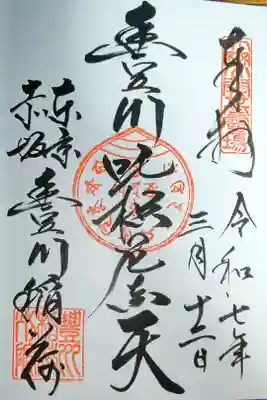 奉拝
令和七年
三月十二日
豊川吒枳尼真天
東京
赤坂
豊川稲荷